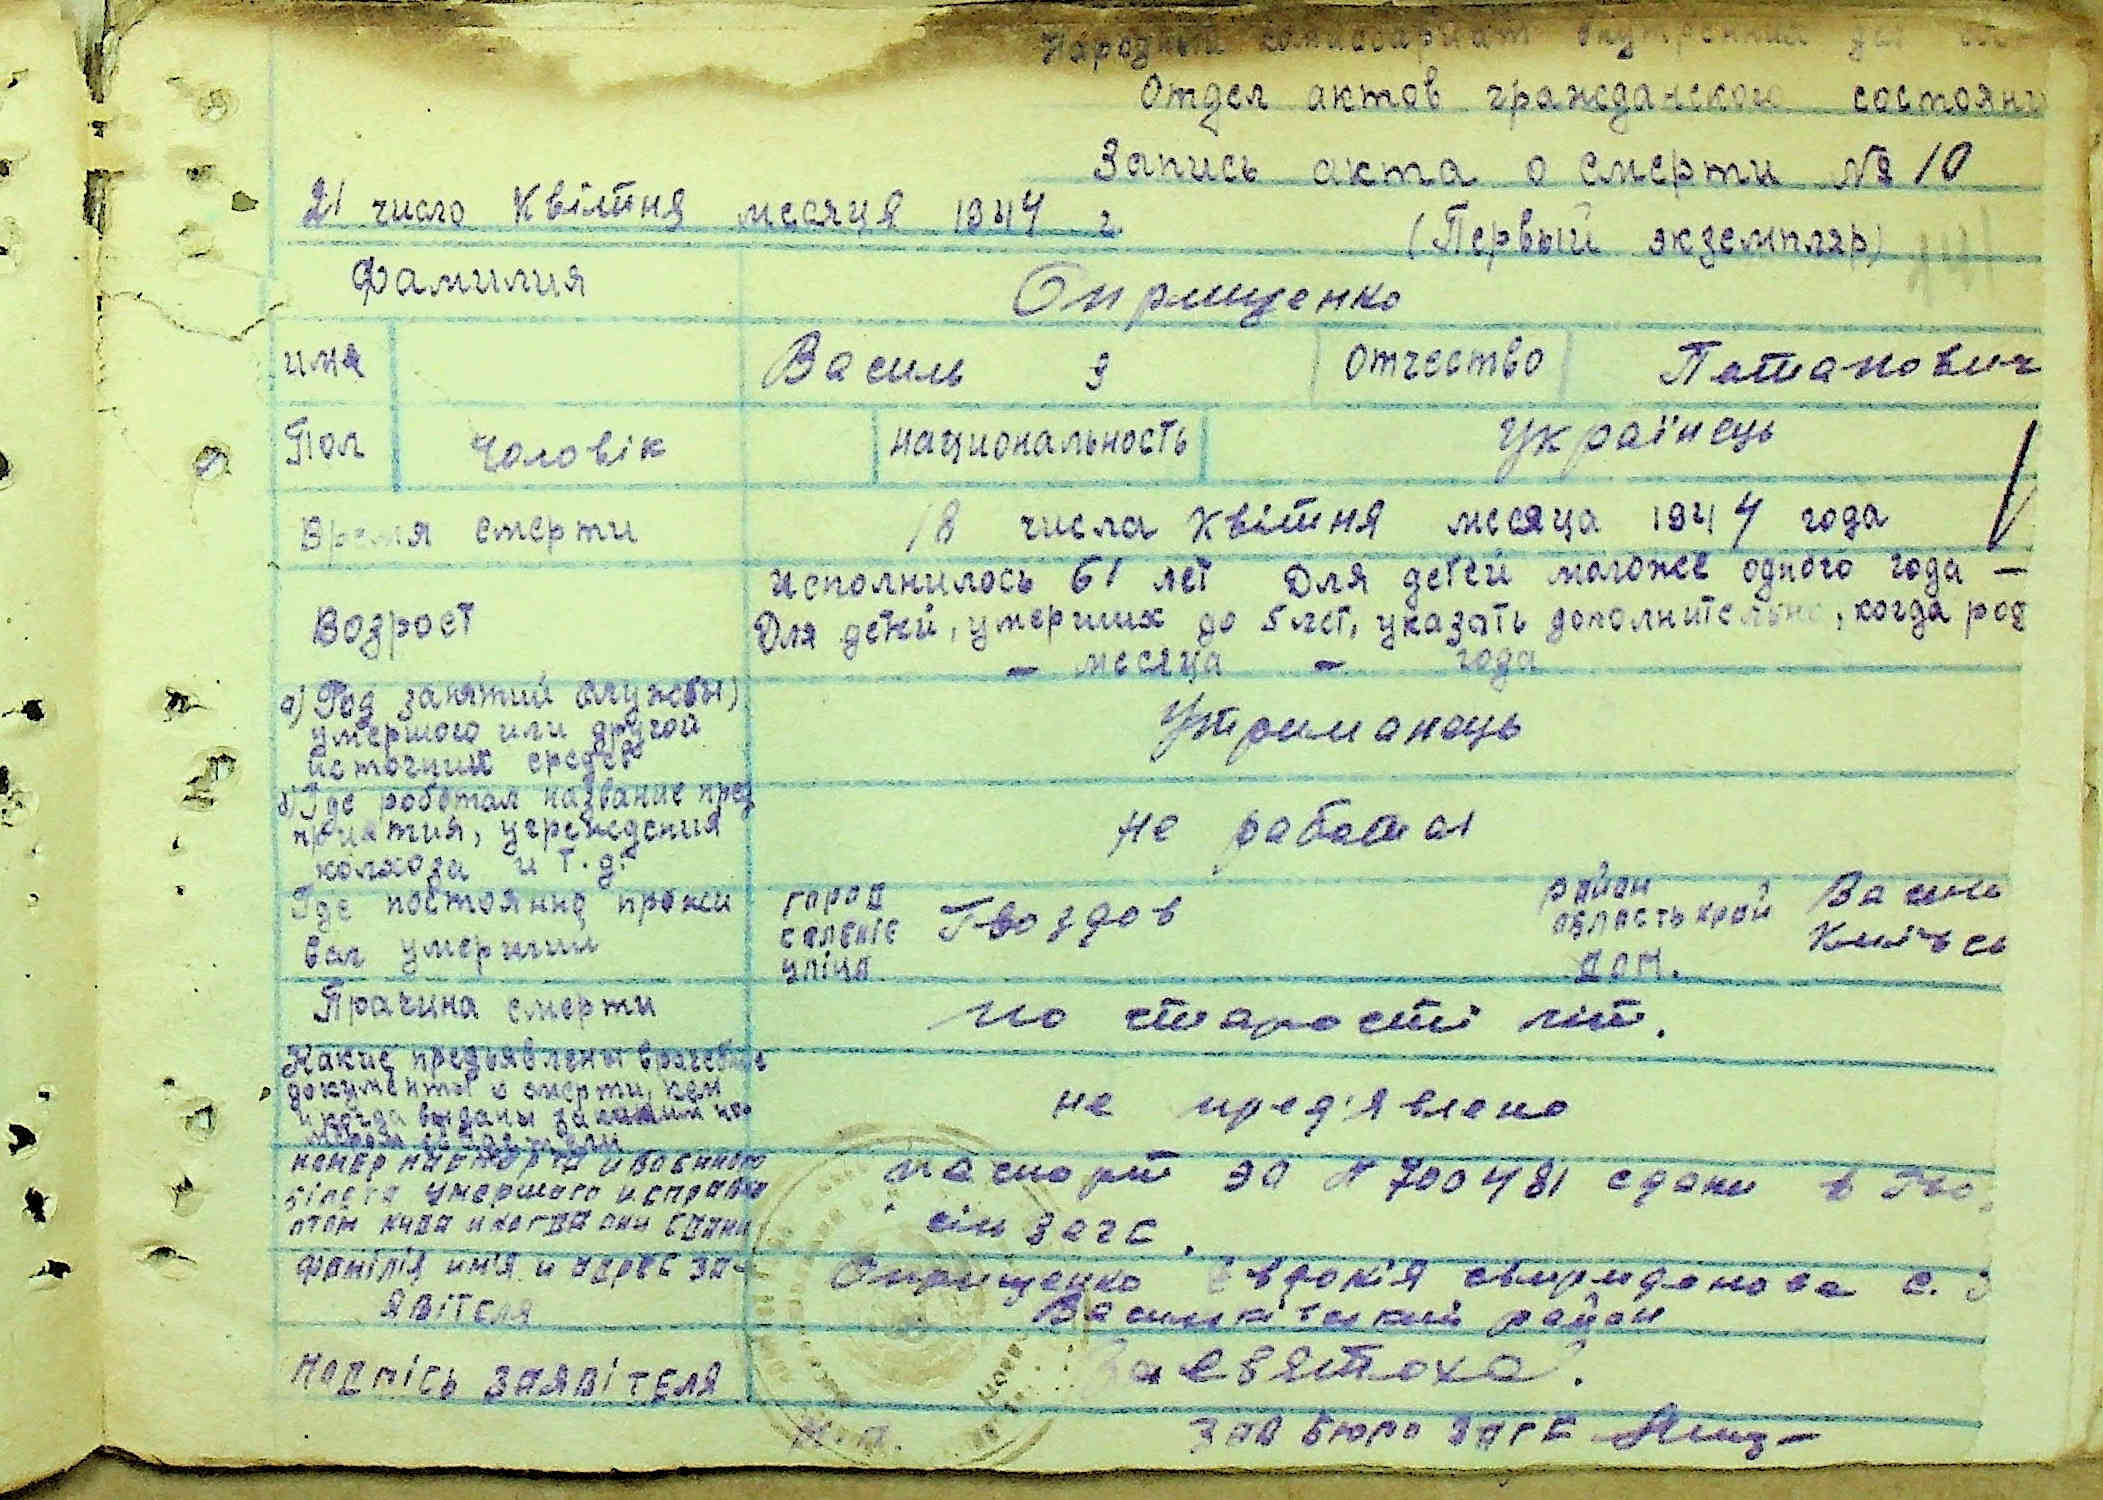 Народный комиссариат внутренних дел
Отдел актов гражданского состояни
Запись акта о смерти №10
21 число Квітня месяця 1944 г.
(Первый экземпляр)
Фамилия Оприщенко
имя Василь Отчество Патанович
Пол Чоловік национальность Українець
Время смерти 18 числа Квітня месяца 1944 года
Возрост исполнилось 61 лет Для детей моложе одного года —
Для детей, умерших до 5 лет, указать дополнительно, когда род
— месяца — года
а) Род занятий службы)
умершого или другой
источник средсв
Утриманець
б) Где роботал название пред
приятия, учреждения
колхоза и т.д.
не работал
Где постоянно прожи
вал умерший
город
селеніе Гвоздов
уліца
район Васильк
область край Київсь
дом.
Прачина смерти по старості літ.
Какие предъявлены врачебные
документы о смерти, кем
и когда выданы за каким но
не пред'явлено
номер паспорта и воєнного
білета умершого и справка
отом куда и когда они сданы
паспорт ЭО № 700481 сдани в Гво
сіль загс.
фамілія им'я и адрес за-
явітеля
Оприщенко Євдокія свиридоновa с.
Васильківський район
Подпісь заявітеля За Святоха.
М.П. Зав бюро загс